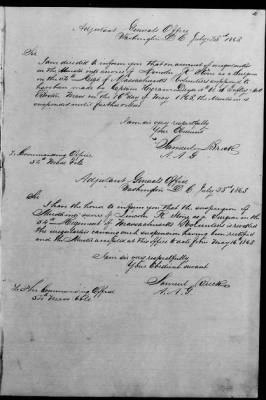 Adjutant Generals Office
Washington D. C. July 25th 1863
Sir
I am directed to inform you that on account of irregularities
in the Muster roll ... of Lincoln R. Stone as Surgeon
in the 54th Regt of Massachusetts Volunteers supposed to
have been made by Captain ... U.S. A. ...
... Mass on the 16th day of May 1863, the Muster in is
suspended until further orders
I am sir very respectfully
Your Obedient
Samuel Breck
A. A. G.
To Commanding Officer
54th Mass Vols
Adjutant Generals Office
Washington D. C. July 25th 1863
Sir
I have the honor to inform you that the suspension of
Muster in of Lincoln R. Stone as a Surgeon in the
54th Regiment of Massachusetts Volunteers is revoked
the irregularities causing such suspension having been rectified
and the Muster accepted at this Office to date from May 16th 1863
I am sir very respectfully
Your Obedient servant
Samuel Breck
A. A. G.
To The Commanding Officer
54th Mass Vols